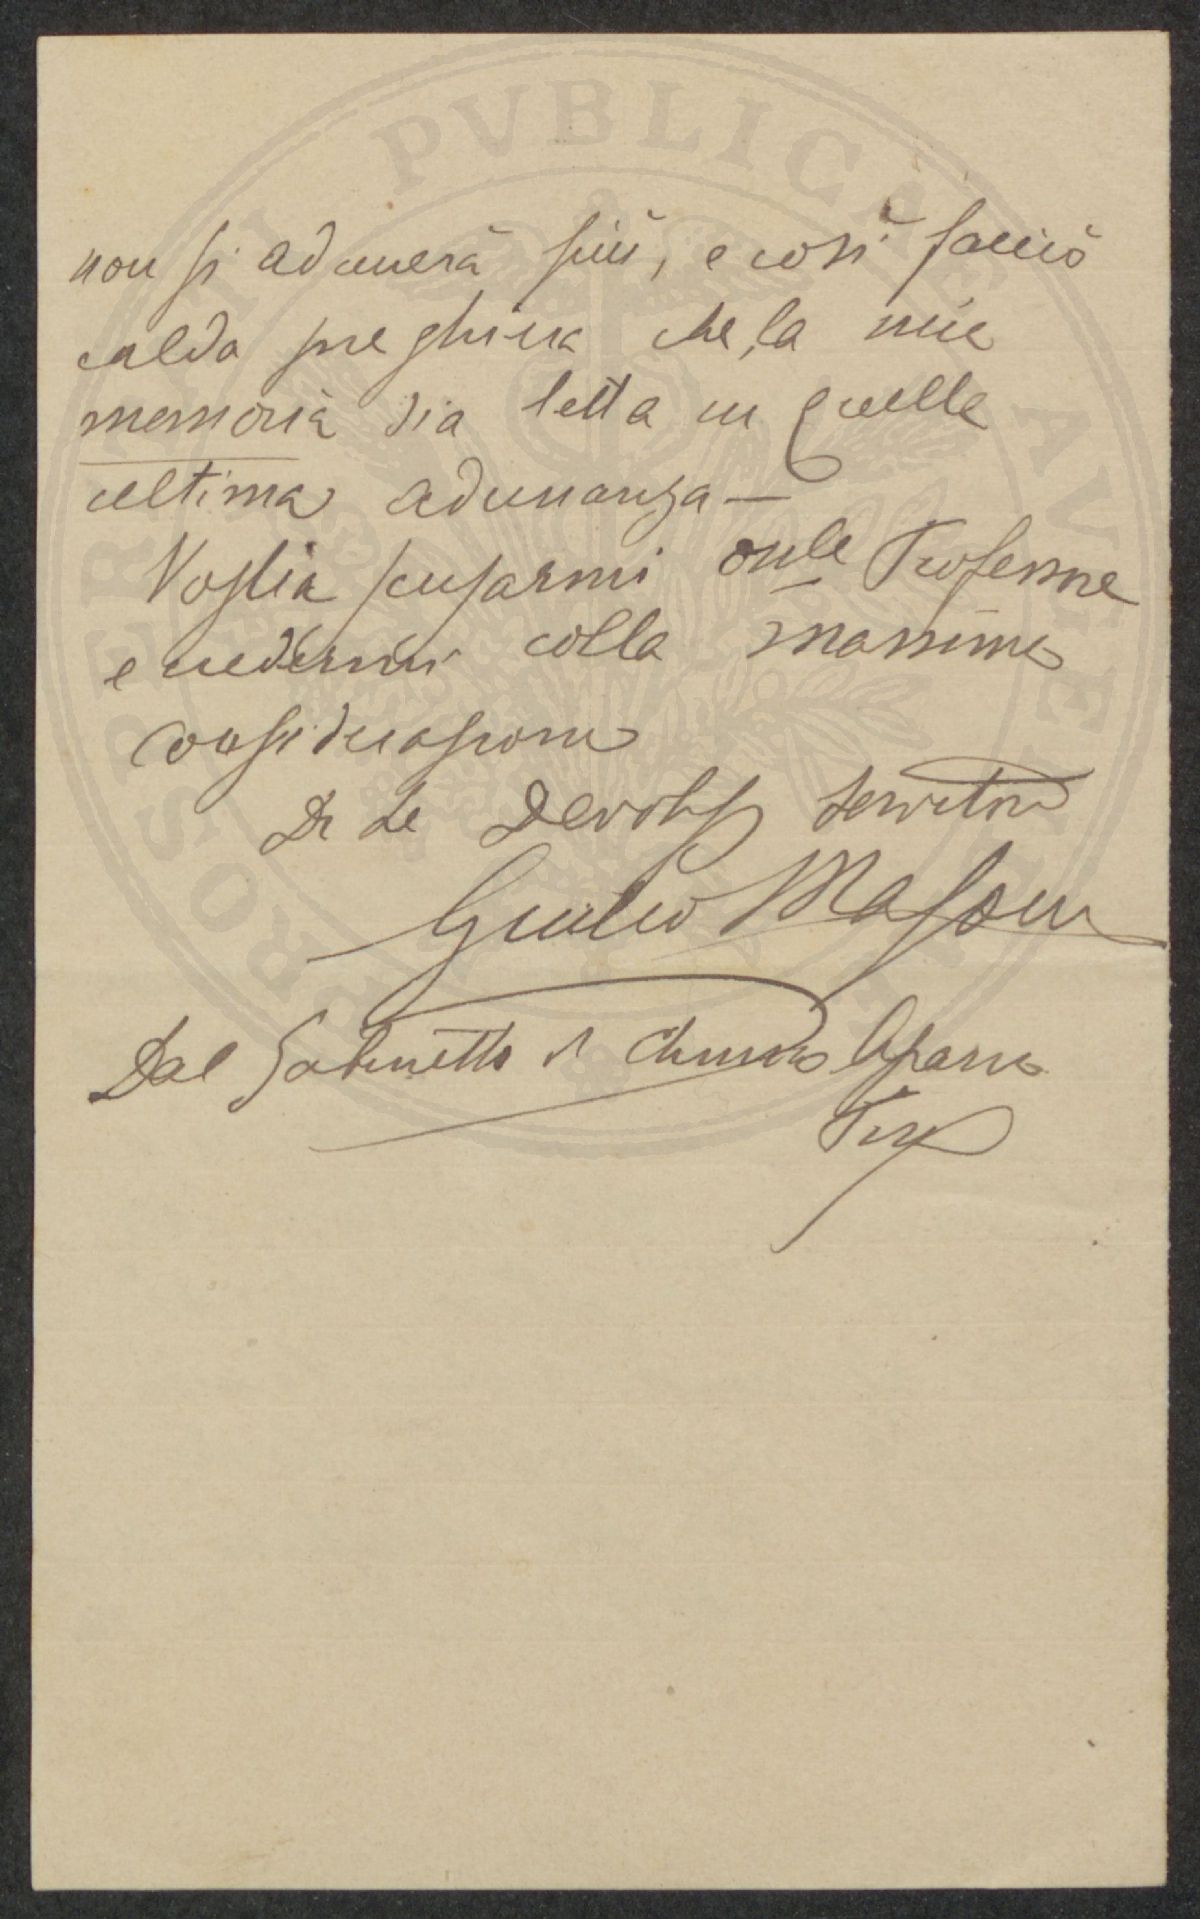 non si adunerà più, e così faccio
calda preghiera che, la mia
memoria sia letta in quella
ultima adunanza —
Voglia scusarmi onle Professore
e credermi colla massima
considerazione
Di Le Devotiss servitore
Giulio Masoni
Dal Gabinetto di Chimica Agraria
Pisa